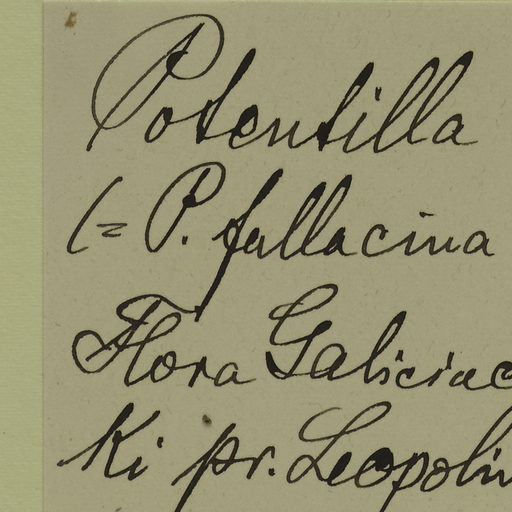 Potentilla
(= P. fallacina
Flora Galiciae
Ki pr. Leopolim